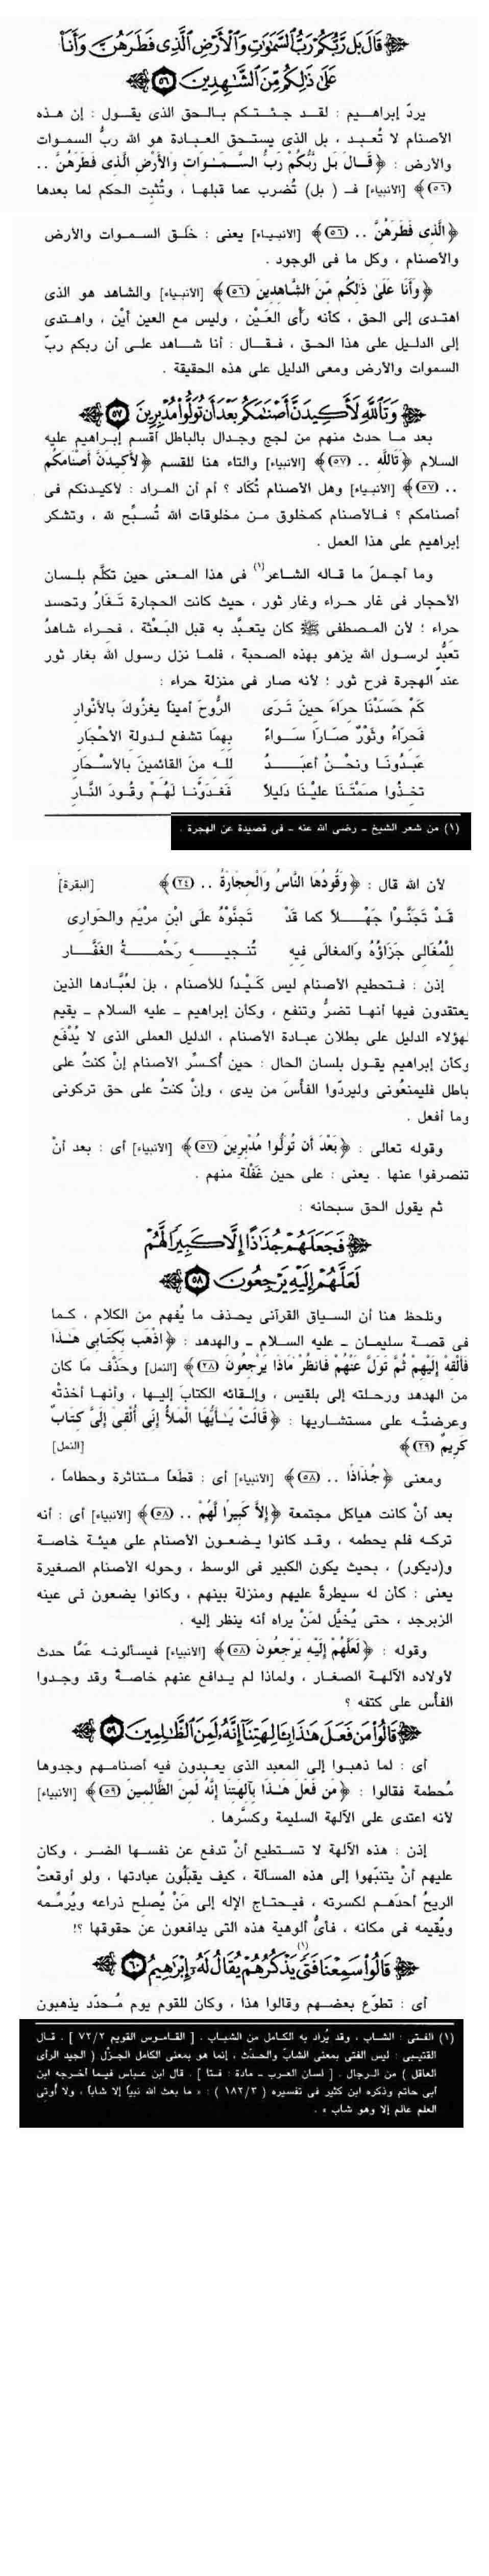 قَالَ بَل رَّبُّكُمْ رَبُّ السَّمَٰوَٰتِ وَالْأَرْضِ الَّذِى فَطَرَهُنَّ وَأَنَا۠
عَلَىٰ ذَٰلِكُم مِّنَ الشَّٰهِدِينَ ٥٦
يردّ إبراهيم : لقد جئتكم بالحق الذى يقول : إن هذه
الأصنام لا تُعبد ، بل الذى يستحق العبادة هو الله ربُّ السموات
والأرض : ﴿ قَالَ بَل رَّبُّكُمْ رَبُّ السَّمَٰوَاتِ وَالأَرْضِ الَّذِى فَطَرَهُنَّ ..
(٥٦) ﴾ [الأنبياء] فـ ( بل) تُضرب عما قبلها ، وتُثبت الحكم لما بعدها
﴿ الَّذِى فَطَرَهُنَّ .. (٥٦) ﴾ [الأنبياء] يعنى : خَلَق السموات والأرض
والأصنام ، وكل ما فى الوجود .
﴿ وَأَنَا عَلَىٰ ذَلِكُم مِّنَ الشَّاهِدِينَ (٥٦) ﴾ [الأنبياء] والشاهد هو الذى
اهتدى إلى الحق ، كأنه رأى العَيْن ، وليس مع العين أيْن ، واهتدى
إلى الدليل على هذا الحق ، فقال : أنا شاهد على أن ربكم ربّ
السموات والأرض ومعى الدليل على هذه الحقيقة .
وَتَاللَّهِ لَأَكِيدَنَّ أَصْنَٰمَكُم بَعْدَ أَن تُوَلُّوا۟ مُدْبِرِينَ ٥٧
بعد ما حدث منهم من لجج وجدال بالباطل أقسم إبراهيم عليه
السلام ﴿ تَاللَّهِ .. (٥٧) ﴾ [الأنبياء] والتاء هنا للقسم ﴿ لأَكِيدَنَّ أَصْنَامَكُم
.. (٥٧) ﴾ [الأنبياء] وهل الأصنام تُكَاد ؟ أم أن المراد : لأكيدنكم فى
أصنامكم ؟ فالأصنام كمخلوق من مخلوقات الله تُسبِّح لله ، وتشكر
إبراهيم على هذا العمل .
وما أجملَ ما قاله الشاعر(١) فى هذا المعنى حين تكلَّم بلسان
الأحجار فى غار حراء وغار ثور ، حيث كانت الحجارة تَغَارُ وتحسد
حراء ؛ لأن المصطفى ﷺ كان يتعبَّد به قبل البَعْثة ، فحراء شاهدُ
تعبُّدٍ لرسول الله يزهو بهذه الصحبة ، فلما نزل رسول الله بغار ثور
عند الهجرة فرح ثور ؛ لأنه صار فى منزلة حراء :
كَمْ حَسَدْنَا حِرَاءَ حينَ تَرَى الرُّوحَ أمينًا يغزُوكَ بالأنْوارِ
فَحِرَاءُ وثَوْرٌ صَارَا سَواءً بهِمَا تشفع لدولة الأحْجَارِ
عَبدُونَا ونحْنُ أعبَدُ للـه منَ القائمين بالأسْحَارِ
تخذُوا صَمْتَنَا عليْنَا دَليلاً فغَدَوْنا لهُمْ وقُودَ النَّارِ
(١) من شعر الشيخ - رضى الله عنه - فى قصيدة عن الهجرة .
لأن الله قال : ﴿ وَقُودُهَا النَّاسُ وَالْحِجَارَةُ .. (٢٤) ﴾ [البقرة]
قَدْ تَجَنَّوْا جَهْلاً كما قَدْ تَجنَّوْهُ علَى ابْنِ مرْيَم والحَوارِى
للْمُغَالِى جَزَاؤُهُ والمغالَى فيهِ تُنجِيهِ رَحْمةُ الغَفَّارِ
إذن : فتحطيم الأصنام ليس كَيْداً للأصنام ، بل لعُبَّادها الذين
يعتقدون فيها أنها تضرُّ وتنفع ، وكأن إبراهيم - عليه السلام - يقيم
لهؤلاء الدليل على بطلان عبادة الأصنام ، الدليل العملى الذى لا يُدْفَع
وكأن إبراهيم يقول بلسان الحال : حين أُكسِّر الأصنام إنْ كنتُ على
باطل فليمنعُونى وليردّوا الفأسَ من يدى ، وإنْ كنتُ على حق تركونى
وما أفعل .
وقوله تعالى : ﴿ بَعْدَ أَن تُوَلُّوا مُدْبِرِينَ (٥٧) ﴾ [الأنبياء] أى : بعد أنْ
تنصرفوا عنها . يعنى : على حين غَفْلة منهم .
ثم يقول الحق سبحانه :
فَجَعَلَهُمْ جُذَٰذًا إِلَّا كَبِيرًا لَّهُمْ
لَعَلَّهُمْ إِلَيْهِ يَرْجِعُونَ ٥٨
ونلحظ هنا أن السياق القرآنى يحذف ما يُفهم من الكلام ، كما
فى قصة سليمان - عليه السلام - والهدهد : ﴿ اذْهَب بِّكِتَابِى هَٰذَا
فَأَلْقِهْ إِلَيْهِمْ ثُمَّ تَوَلَّ عَنْهُمْ فَانظُرْ مَاذَا يَرْجِعُونَ (٢٨) ﴾ [النمل] وحَذْف ما كان
من الهدهد ورحلته إلى بلقيس ، وإلقائه الكتابَ إليها ، وأنها أخذتْه
وعرضتْه على مستشاريها : ﴿ قَالَتْ يَٰأَيُّهَا الْمَلأُ إِنِّى أُلْقِىَ إِلَىَّ كِتَابٌ
كَرِيمٌ (٢٩) ﴾ [النمل]
ومعنى ﴿ جُذَاذًا .. (٥٨) ﴾ [الأنبياء] أى : قطعاً متناثرة وحطاماً ،
بعد أنْ كانت هياكل مجتمعة ﴿ إِلاَّ كَبِيرًا لَّهُمْ .. (٥٨) ﴾ [الأنبياء] أى : أنه
تركه فلم يحطمه ، وقد كانوا يضعون الأصنام على هيئة خاصة
و(ديكور) ، بحيث يكون الكبير فى الوسط ، وحوله الأصنام الصغيرة
يعنى : كأن له سيطرةً عليهم ومنزلة بينهم ، وكانوا يضعون فى عينه
الزبرجد ، حتى يُخيَّل لمَنْ يراه أنه ينظر إليه .
وقوله : ﴿ لَعَلَّهُمْ إِلَيْهِ يَرْجِعُونَ (٥٨) ﴾ [الأنبياء] فيسألونه عَمَّا حدث
لأولاده الآلهة الصغار ، ولماذا لم يدافع عنهم خاصة وقد وجدوا
الفأس على كتفه ؟
قَالُوا۟ مَن فَعَلَ هَٰذَا بِـَٔالِهَتِنَآ إِنَّهُۥ لَمِنَ الظَّٰلِمِينَ ٥٩
أى : لما ذهبوا إلى المعبد الذى يعبدون فيه أصنامهم وجدوها
مُحطمة فقالوا : ﴿ مَن فَعَلَ هَٰذَا بِآلِهَتِنَا إِنَّهُ لَمِنَ الظَّالِمِينَ (٥٩) ﴾ [الأنبياء]
لأنه اعتدى على الآلهة السليمة وكسَّرها .
إذن : هذه الآلهة لا تستطيع أنْ تدفع عن نفسها الضر ، وكان
عليهم أنْ يتنبَّهوا إلى هذه المسألة ، كيف يقبلُون عبادتها ، ولو أوقعتْ
الريحُ أحدَهم لكسرته ، فيحتاج الإله إلى مَنْ يُصلح ذراعه ويُرمِّمه
ويُقيمه فى مكانه ، فأىُّ ألوهية هذه التى يدافعون عن حقوقها ؟!
قَالُوا۟ سَمِعْنَا فَتًى(١) يَذْكُرُهُمْ يُقَالُ لَهُۥٓ إِبْرَٰهِيمُ ٦٠
أى : تطوَّع بعضهم وقالوا هذا ، وكان للقوم يوم مُحدَّد يذهبون
(١) الفتى : الشاب ، وقد يُراد به الكامل من الشباب . [ القاموس القويم ٧٢/٢ ] . قال
القتيبى : ليس الفتى بمعنى الشابّ والحدَث ، إنما هو بمعنى الكامل الجزْل ( الجيد الرأى
العاقل ) من الرجال . [ لسان العرب - مادة : فتا ] . قال ابن عباس فيما أخرجه ابن
أبى حاتم وذكره ابن كثير فى تفسيره ( ١٨٢/٣ ) : « ما بعث الله نبياً إلا شاباً ، ولا أُوتى
العلم عالم إلا وهو شاب » .